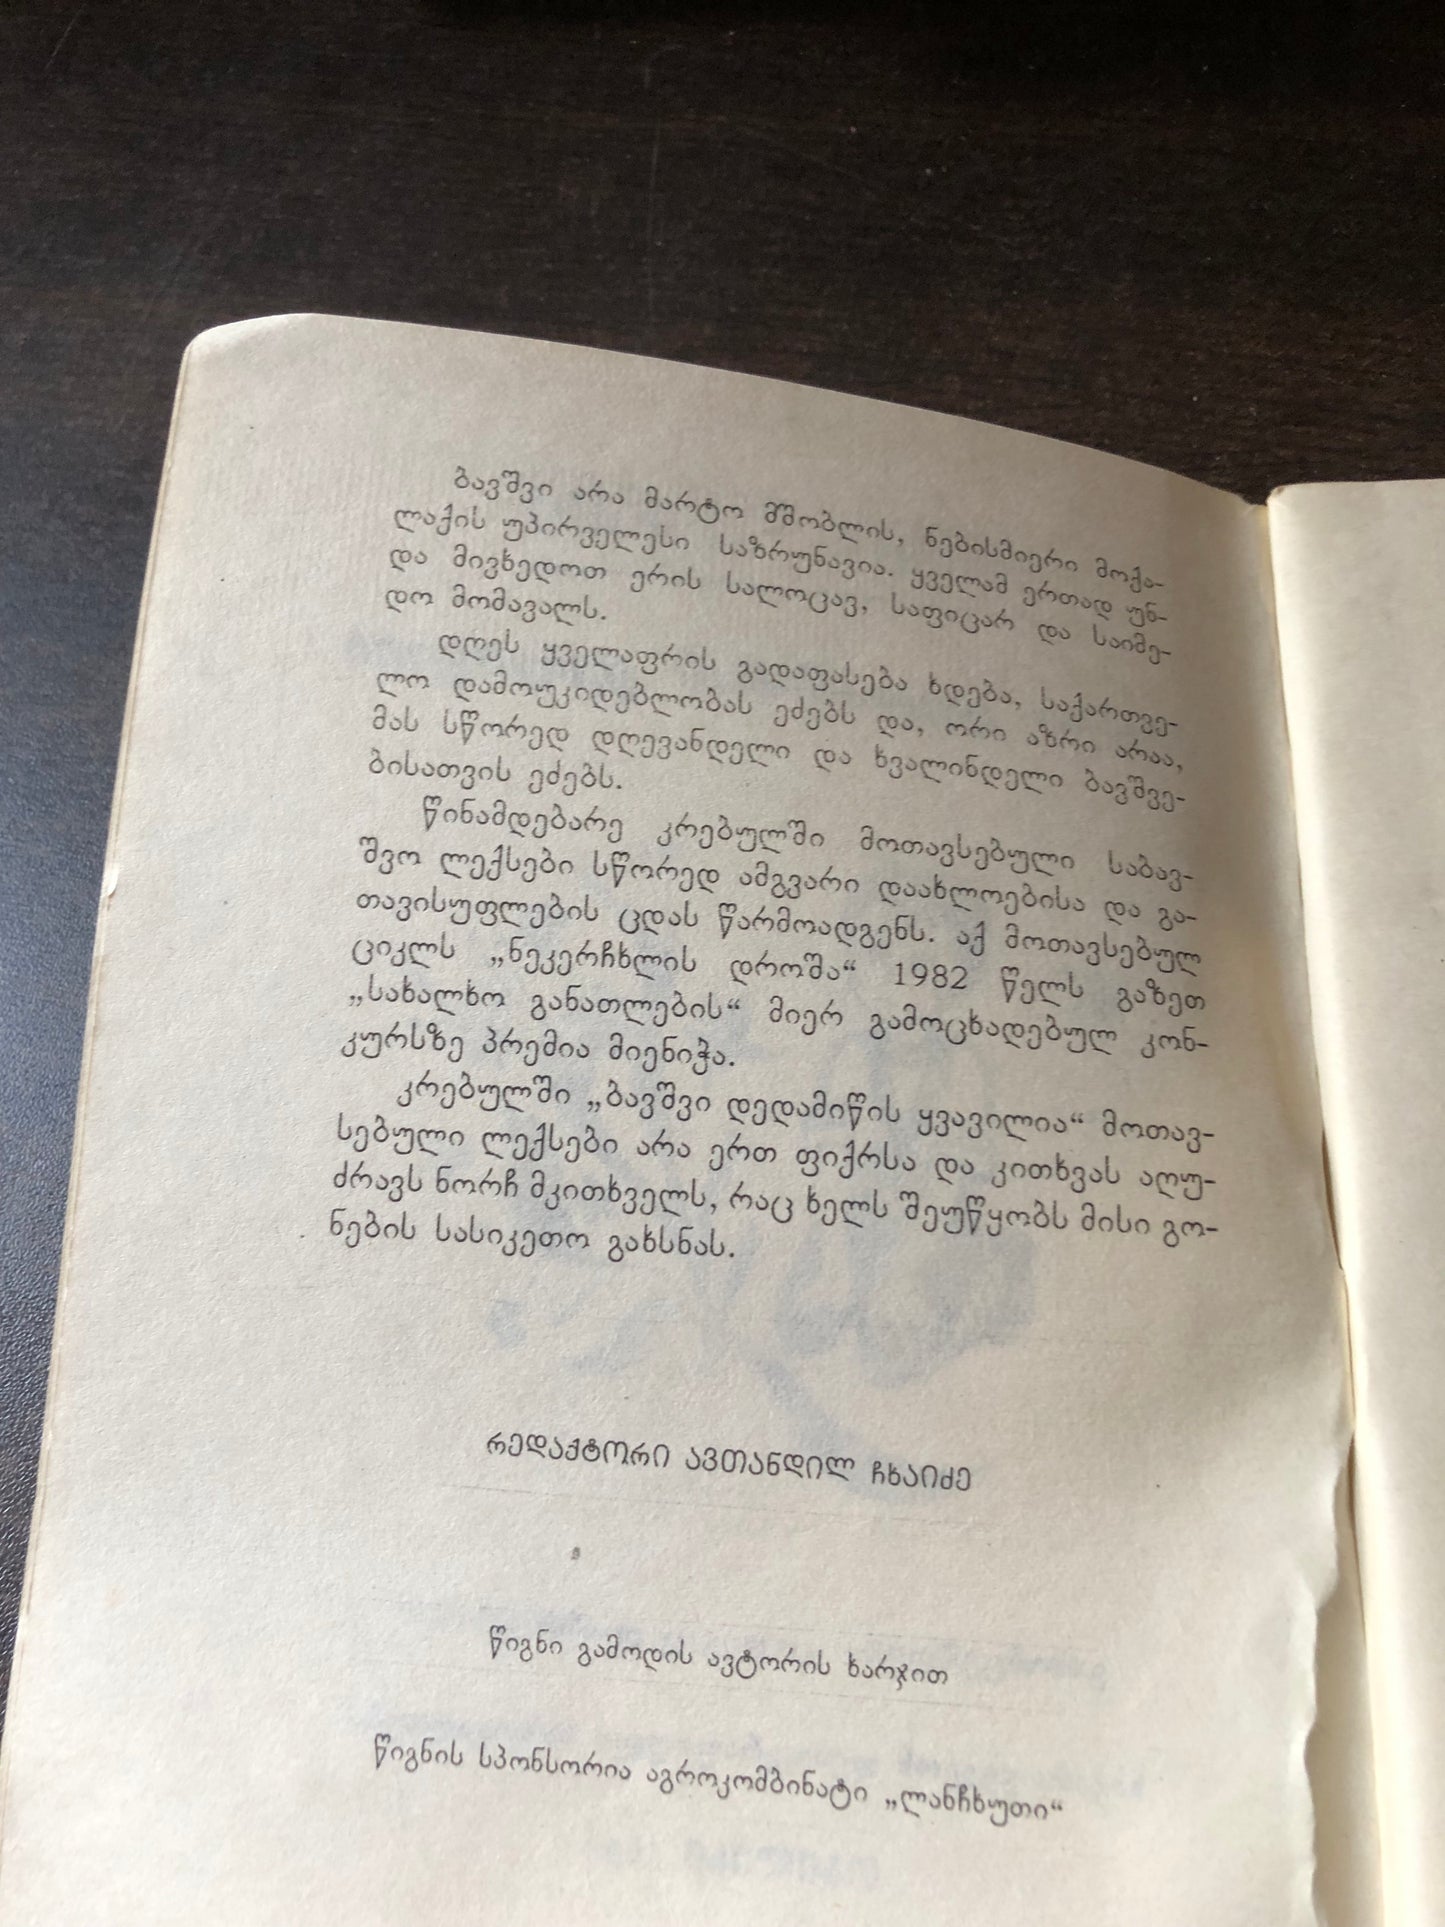 ბავშვი არა მარტო მშობლის, ნებისმიერი მოქა-
ლაქის უპირველესი საზრუნავია. ყველამ ერთად უნ-
და მივხედოთ ერის სალოცავ, საფიცარ და საიმე-
დო მომავალს.
დღეს ყველაფრის გადაფასება ხდება, საქართვე-
ლო დამოუკიდებლობას ეძებს და, ორი აზრი არაა,
მას სწორედ დღევანდელი და ხვალინდელი ბავშვე-
ბისათვის ეძებს.
წინამდებარე კრებულში მოთავსებული საბავ-
შვო ლექსები სწორედ ამგვარი დაახლოებისა და გა-
თავისუფლების ცდას წარმოადგენს. აქ მოთავსებულ
ციკლს „ნეკერჩხლის დროშა“ 1982 წელს გაზეთ
„სახალხო განათლების“ მიერ გამოცხადებულ კონ-
კურსზე პრემია მიენიჭა.
კრებულში „ბავშვი დედამიწის ყვავილია“ მოთავ-
სებული ლექსები არა ერთ ფიქრსა და კითხვას აღუ-
ძრავს ნორჩ მკითხველს, რაც ხელს შეუწყობს მისი გო-
ნების სასიკეთო გახსნას.
რედაქტორი ავთანდილ ჩხაიძე
წიგნი გამოდის ავტორის ხარჯით
წიგნის სპონსორია აგროკომბინატი „ლანჩხუთი“